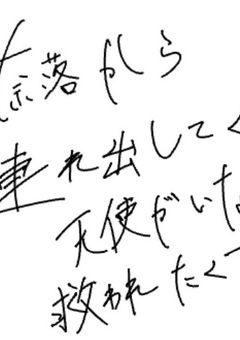 奈落から
連れ出してく
天使がいた
救われたくて